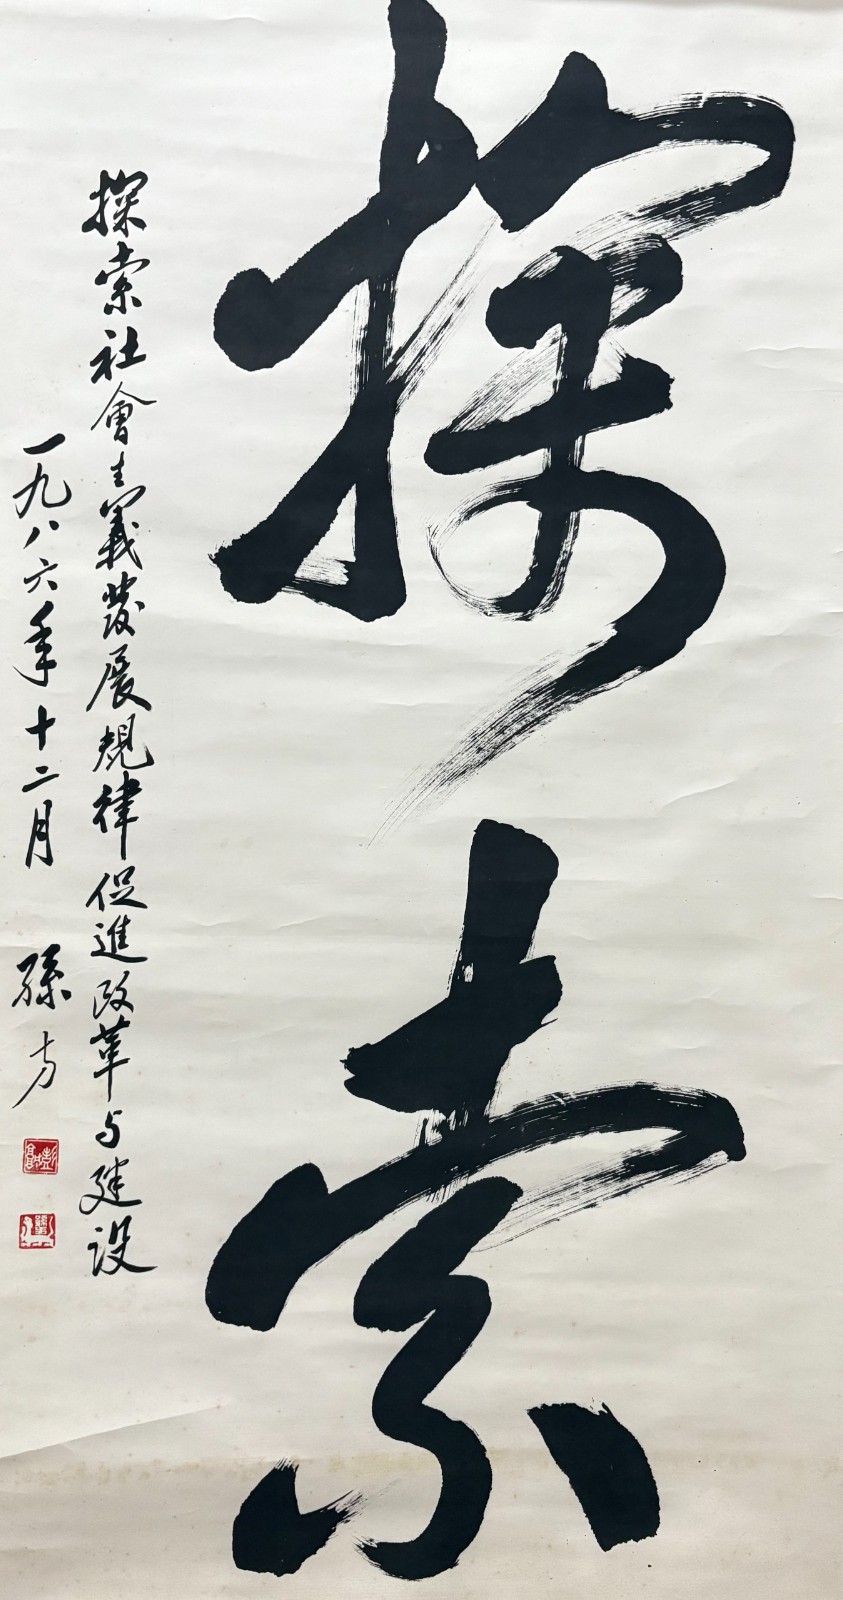 探索
探索社會主義發展規律促進改革与建设
一九八六年十二月 孫方